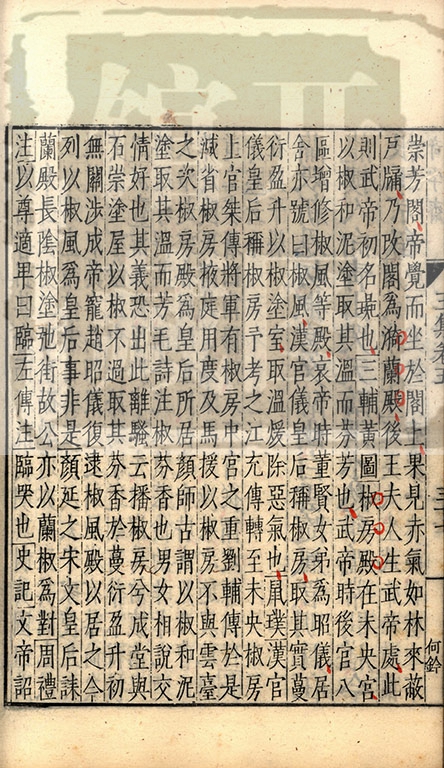 崇芳閣帝覺而坐於閣上果見赤氣如林來蔽
戸牖乃改閣爲猗蘭殿後王夫人生武帝處此
則武帝初名彘也三輔黃圖椒房殿在未央宮
以椒和泥塗取其溫而芬芳也武帝時後宮八
區增修椒風等殿哀帝時董賢女弟爲昭儀居
舍亦號曰椒風漢官儀皇后稱椒房取其實蔓
衍盈升以椒塗室取溫煖除惡氣也風璞漢官
儀皇后稱椒房予考之江充傳轉至未央椒房
上官桀傳將軍有椒房中宮之重劉輔傳於是
減省椒房掖庭用度及馬援以椒房不與雲臺
之次椒房殿爲皇后所居顏師古謂以椒和泥
塗取其溫而芳毛詩注椒芬香也男女相說交
情好也其義恐出此離騷云播椒房兮成堂與
石崇塗屋以椒不過取其芬香於蔓衍盈升初
無關涉成帝寵趙昭儀復逮椒風殿以居之今
列以椒風爲皇后事非是顏延之宋文皇后誄
蘭殿長陰椒塗弛衛故公亦以蘭椒爲對周禮
注以尊適卑曰臨左傳注臨哭也史記文帝詔
何鈴